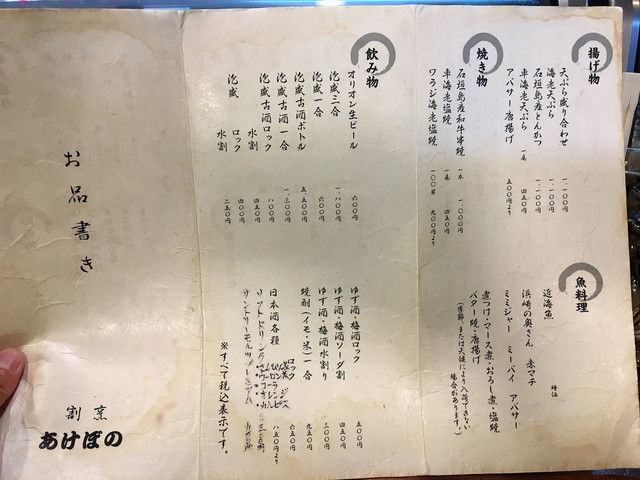 揚げ物
天ぷら盛り合わせ 一、一〇〇円
海老天ぷら 一、一〇〇円
石垣島産とんかつ 一、一〇〇円
車海老天ぷら 一尾 四五〇円
アバサー唐揚げ 五〇〇円より
焼き物
石垣島産和牛串焼 一本 一、〇〇〇円
車海老塩焼 一尾 四五〇円
ワラジ海老塩焼 一〇〇g 九〇〇円より
魚料理
近海魚 時価
浜崎の奥さん 赤マチ
ミミジャー ミーバイ アバサー
煮つけ・マース煮・おろし煮・塩焼
バター焼・唐揚げ
(季節または天候により入荷できない
場合があります。)
飲み物
オリオン生ビール 六〇〇円
泡盛三合 一、八〇〇円
泡盛一合 六〇〇円
泡盛古酒ボトル 五、五〇〇円
泡盛古酒一合 一、三〇〇円
泡盛古酒ロック 八〇〇円
水割 四五〇円
泡盛 ロック 四〇〇円
水割 二五〇円
ゆず酒・梅酒ロック 五〇〇円
ゆず酒・梅酒ソーダ割 四五〇円
ゆず酒・梅酒水割り 三〇〇円
焼酎(イモ・米)一合 九五〇円
ロック 六五〇円
日本酒各種 八五〇円より
※すべて税込表示です。
お品書き
割烹
あけぼの